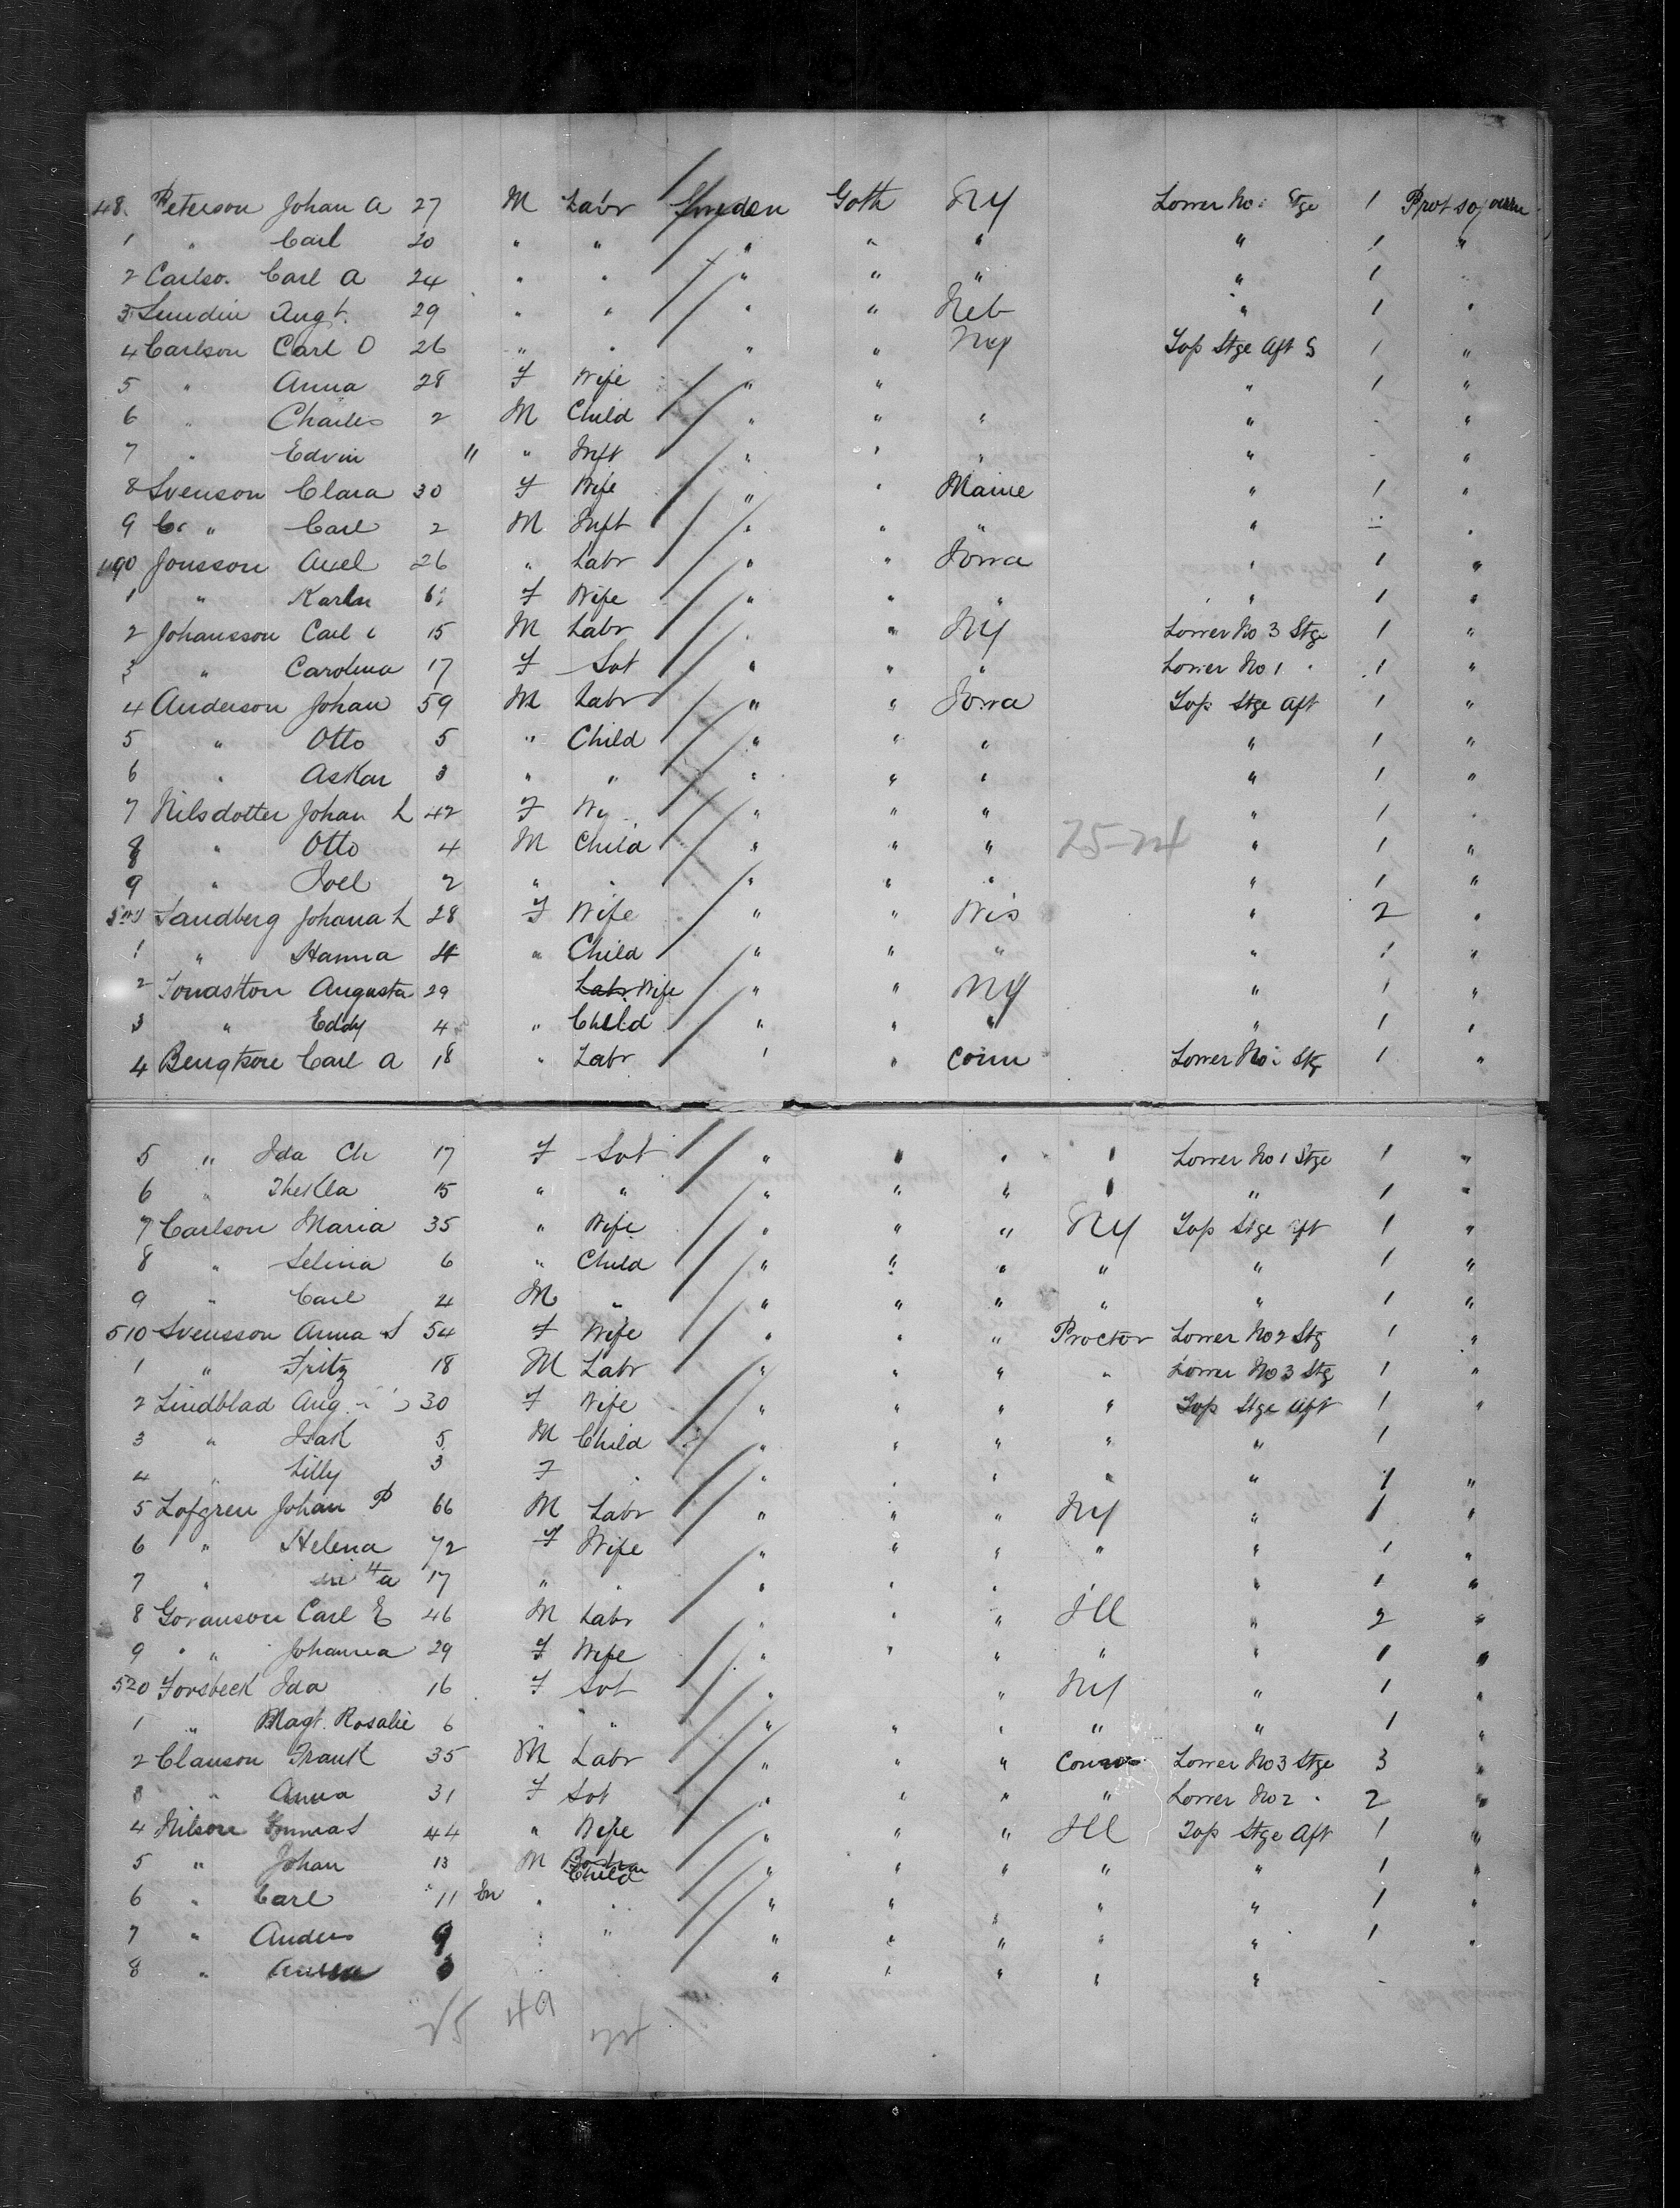 48. Peterson Johan A 27 M Labr Sweden Goth NY Lower No. Stge 1 Prot sojourn
1 " Carl 20 " " " " " " 1 "
2 Carlso. Carl A 24 " " " " " " 1
3 Lundin Augt. 29 " " " " Neb " 1 "
4 Carlson Carl O 26 " " " " NY Top Stge Aft S 1 "
5 " Anna 28 F Wife " " " 1 "
6 " Charles 2 M Child " " " " - "
7 " Edvin 11 " Inft " " " " - "
8 Svenson Clara 30 F Wife " " Maine " 1 "
9 " Carl 2 M Inft " " " " - "
490 Jonsson Axel 26 " Labr " " Iowa " 1 "
1 " Karln F Wife " " " " 1 "
2 Johansson Carl 15 M Labr " " NY Lower No 3 Stge 1 "
3 " Carolina 17 F Svt " " " Lower No 1 " 1 "
4 Anderson Johan 59 M Labr " " Iowa Top Stge Aft 1 "
5 " Otto 5 " Child " " " " 1 "
6 " Askar 3 " " " " " " 1 "
7 Nilsdotter Johan L 42 F " " " " 1 "
8 " Otto 4 M Child " " " 25-24 " 1 "
9 " Joel 2 " " " " " " 1 "
Sandberg Johana L 28 F Wife " " Wis " 2 "
1 " Hanna 4 " Child " " " " 1 "
2 Augusta 29 Labr Wife " " NY " 1 "
3 " Eddy 4 " Child " " " " 1 "
4 Bengtson Carl A 18 " Labr " " Conn Lower No. Stg 1 "
5 " Ida Ch 17 F Svt " " " " Lower No 1 Stge 1 "
6 " Thekla 15 " " " " " " " 1 "
7 Carlson Maria 35 " Wife " " " NY Top Stge Aft 1 "
8 " Selina 6 " Child " " " " " 1 "
9 " Carl 4 M " " " " " " 1 "
510 Svensson Anna S 54 F Wife " " " Proctor Lower No 2 Stg 1 "
1 " Fritz 18 M Labr " " " " Lower No 3 Stg 1 "
2 Lindblad Aug 30 F Wife " " " " Top Stge Aft 1 "
3 " Isak 5 M Child " " " " " 1
4 " Lilly 3 F " " " " " " 1 "
5 Lofgren Johan P 66 M Labr " " " NY " 1 "
6 " Helena 72 F Wife " " " " " 1 "
7 " 17 " " " " " " " 1 "
8 Goranson Carl E 46 M Labr " " " Ill " 2 "
9 " Johanna 29 F Wife " " " " " 1 "
520 Forsbeck Ida 16 F Svt " " NY " 1 "
1 " Magt. Rosalie 6 " " " " " " " 1 "
2 Clauson Frank 35 M Labr " " " Conn Lower No 3 Stge 3 "
3 " Anna 31 F Svt " " " " Lower No 2 " 2 "
4 Nilson Emma S 44 " Wife " " " Ill Top Stge Aft 1 "
5 " Johan 13 M Child " " " " " 1 "
6 " Carl 11 " " " " " " 1 "
7 " Anders 9 " " " " " " " 1 "
8 " " " " " " -
25 49 24